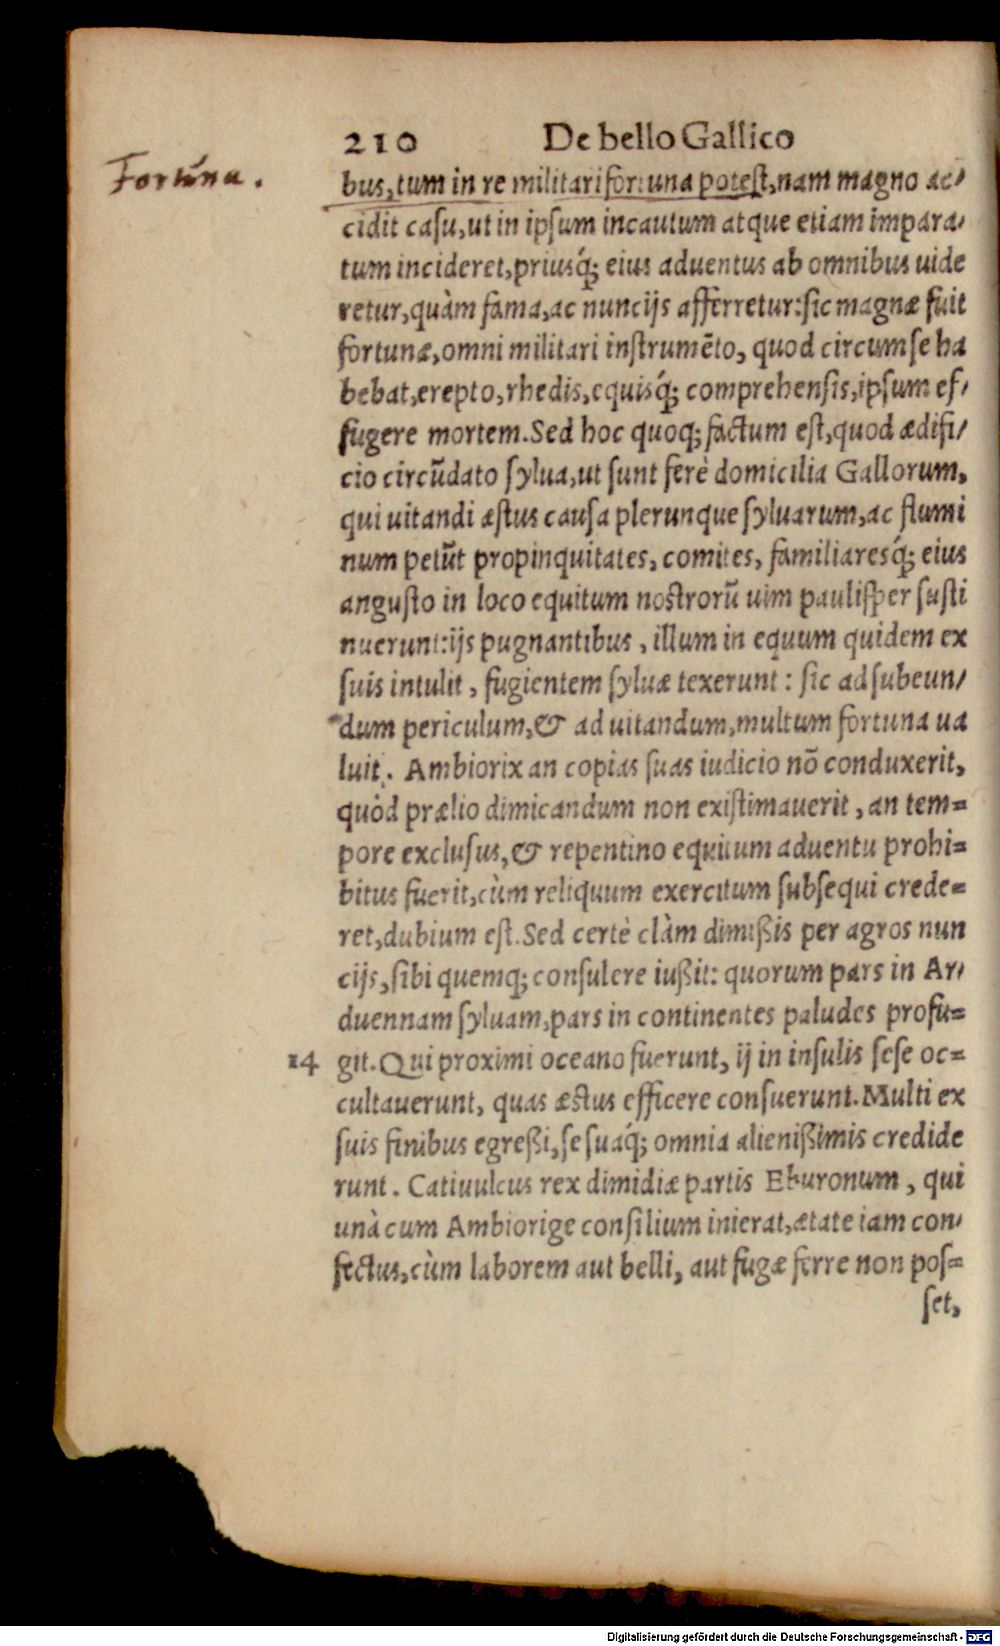 210 De bello Gallico
Fortuna.
bus, tum in re militari fortuna potest, nam magno ac⸗
cidit casu, ut in ipsum incautum atque etiam impara⸗
tum incideret, priusq́; eius aduentus ab omnibus uide
retur, quàm fama, ac nuncijs afferretur: sic magnæ fuit
fortunæ, omni militari instrumẽto, quod circum se ha
bebat, erepto, rhedis, equisq́; comprehensis, ipsum ef⸗
fugere mortem. Sed hoc quoq; factum est, quod ædifi⸗
cio circũdato sylua, ut sunt ferè domicilia Gallorum,
qui uitandi æstus causa plerunque syluarum, ac flumi
num petũt propinquitates, comites, familiaresq́; eius
angusto in loco equitum nostrorũ uim paulisper susti
nuerunt: ijs pugnantibus, illum in equum quidem ex
suis intulit, fugientem syluæ texerunt: sic ad subeun⸗
dum periculum, & ad uitandum, multum fortuna ua
luit. Ambiorix an copias suas iudicio nõ conduxerit,
quòd prælio dimicandum non existimauerit, an tem⸗
pore exclusus, & repentino equitum aduentu prohi⸗
bitus fuerit, cùm reliquum exercitum subsequi crede⸗
ret, dubium est. Sed certè clàm dimißis per agros nun
cijs, sibi quemq; consulere iußit: quorum pars in Ar⸗
duennam syluam, pars in continentes paludes profu⸗
14 git. Qui proximi oceano fuerunt, ij in insulis sese oc⸗
cultauerunt, quas æstus efficere consuerunt. Multi ex
suis finibus egreßi, se suaq́; omnia alienißimis credide
runt. Catiuulcus rex dimidiæ partis Eburonum, qui
unà cum Ambiorige consilium inierat, ætate iam con⸗
fectus, cùm laborem aut belli, aut fugæ ferre non pos⸗
set,
Digitalisierung gefördert durch die Deutsche Forschungsgemeinschaft - DFG